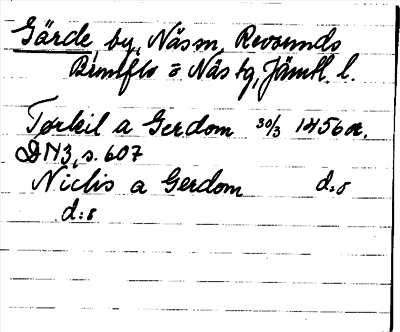 Gärde, by, Näs sn, Revsunds
Brunflo o Näs tg, Jämtl. l.
Torkil a Gerdom 30/3 1456 or.
DN3, s. 607
Niclis a Gerdom d:o
d:o